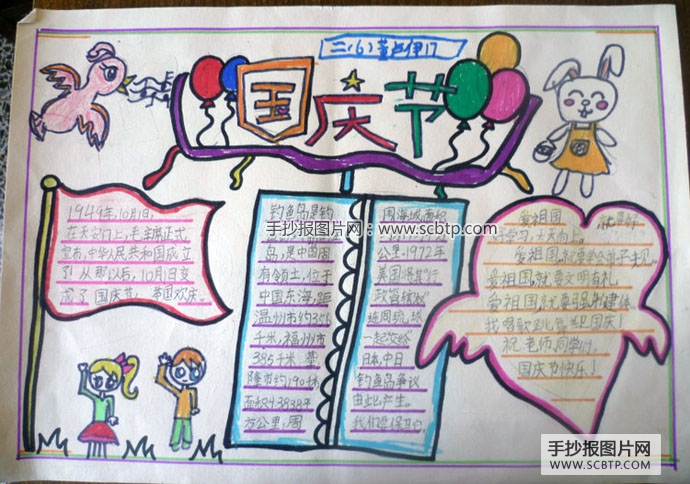 二(6)
国庆节
1949年,10月1日,
在天安门上,毛主席正式
宣布,中华人民共和国成立
了,从那以后,10月1日变
成了国庆节,举国欢庆。
钓鱼岛是钓
岛,是中国固
有领土,位于
中国东海,距
温州市约355
千米,福州市
385千米,基
隆市约190千米
面积4.3838平
方公里,周
围海域面积
公里,1972年
美国将其行
政管辖权
连同琉球
一起交给
日本,中日
钓鱼岛争议
由此产生。
我们要保卫
爱祖国,就要好
好学习,天天向上。
爱祖国,就要
爱祖国,就要文明有礼
爱祖国,就要强身健体。
我唱歌
国庆!
祝老师,同学们,
国庆节快乐!
手抄报图片网 - www.scbtp.com
手抄报图片网
WWW.SCBTP.COM